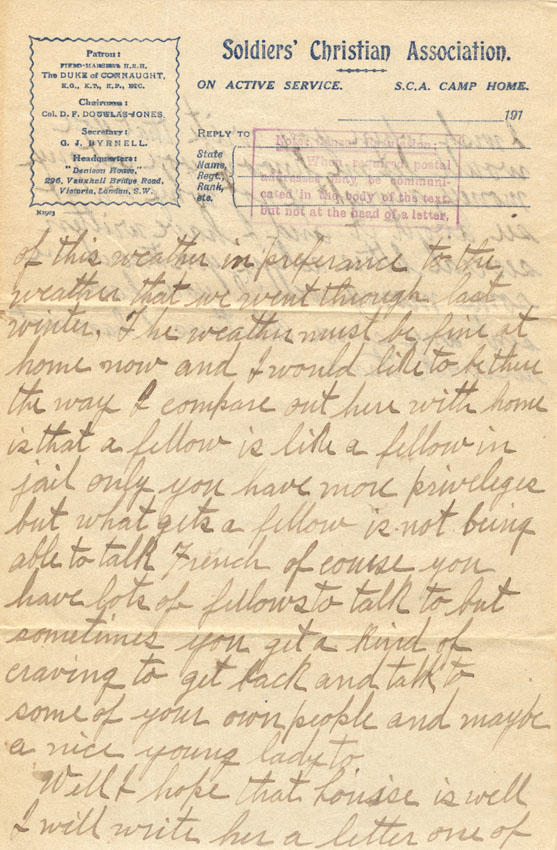 Patron:
FIELD-MARSHAL H.R.H.
The DUKE of CONNAUGHT,
K.G., K.T., K.P., ETC.
Chairman:
Col. D. F. DOUGLAS-JONES.
Secretary:
G. J. BYRNELL.
Headquarters:
"Denison House,
296, Vauxhall Bridge Road,
Victoria, London, S.W.
Soldiers' Christian Association.
ON ACTIVE SERVICE. S.C.A. CAMP HOME.
191
REPLY TO
State
Name,
Regt.,
Rank,
etc.
When required postal
addresses may be communi-
cated in the body of the text,
but not at the head of a letter.
of this weather in preferance to the
weather that we went through last
winter. The weather must be fine at
home now and I would like to be there
the way I compare out here with home
is that a fellow is like a fellow in
jail only you have more priveleges
but what gets a fellow is not being
able to talk French of course you
have lots of fellows to talk to but
sometimes you get a kind of
craving to get back and talk to
some of your own people and maybe
a nice young lady to
Well I hope that Louise is well
I will write her a letter one of